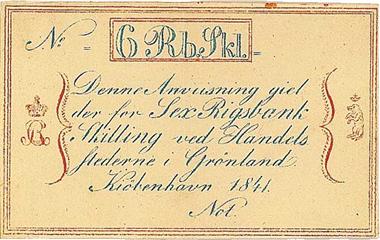 No: = 6 Rb. Skl. =
Denne Anviisning giel
der for Sex Rigsbank
Skilling ved Handels
stederne i Grönland
Kiöbenhavn 1841.
Not.